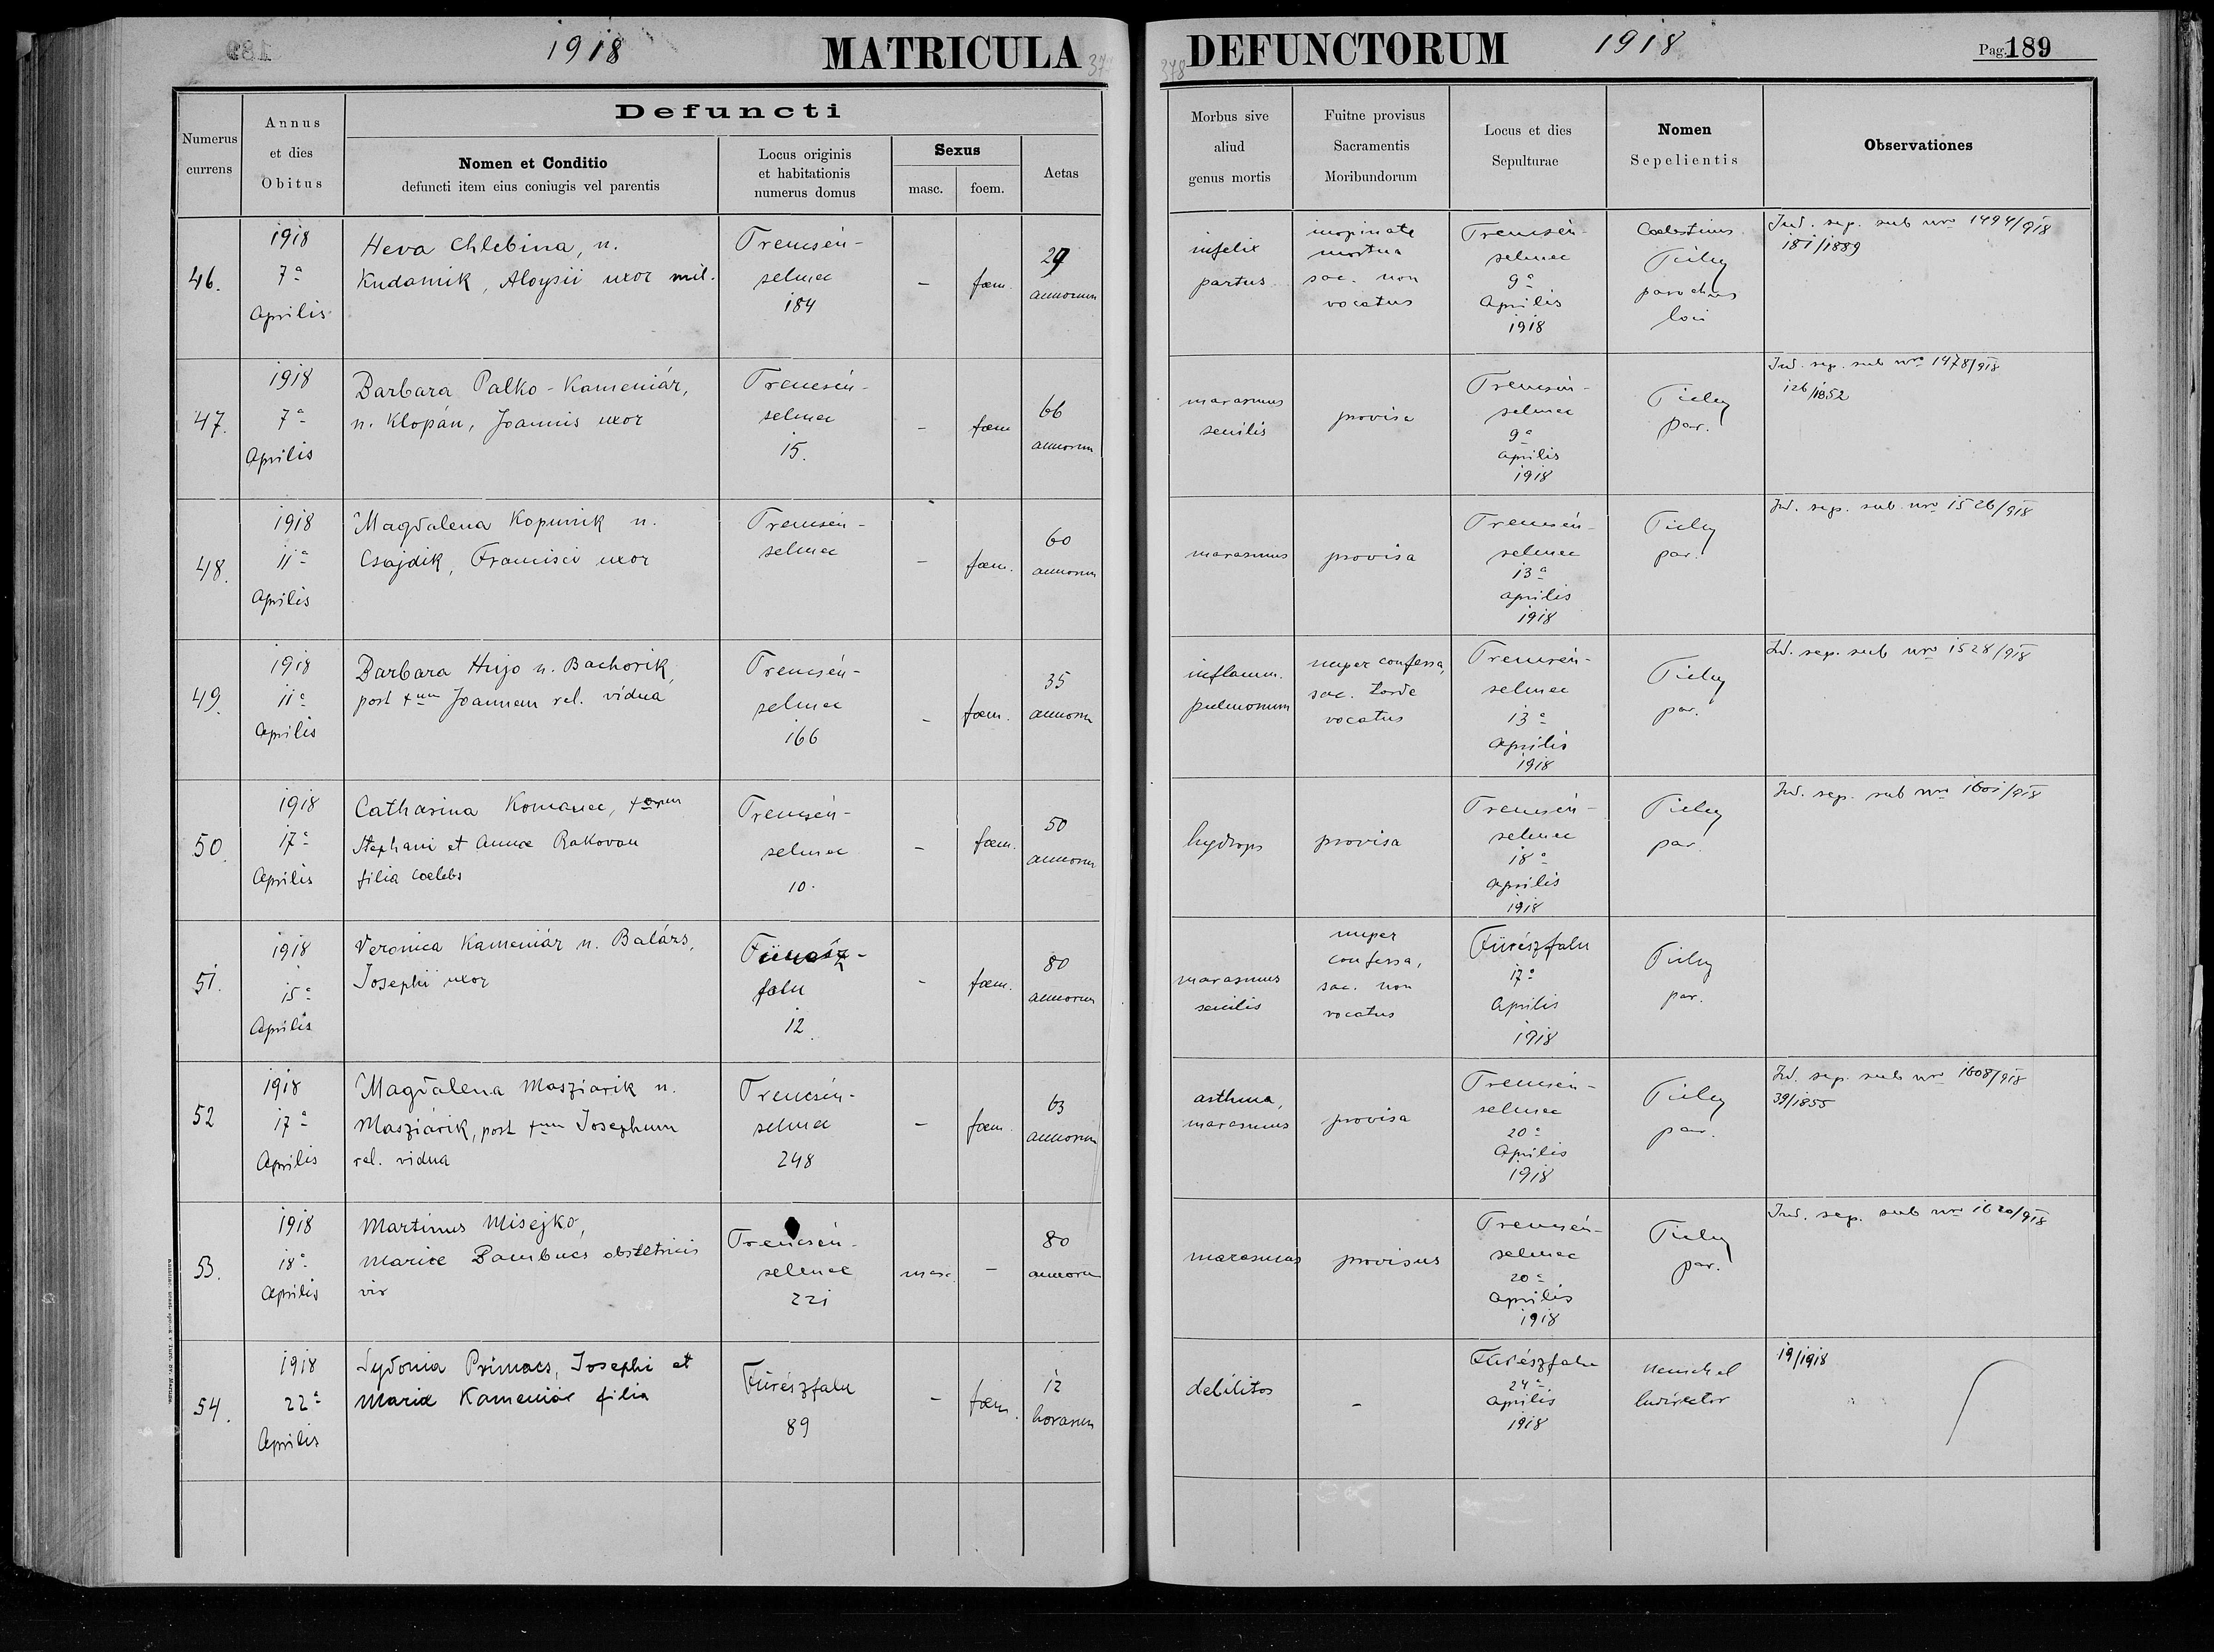 1918
MATRICULA
DEFUNCTORUM
1918
Pag. 189
378
Numerus currens
Annus et dies Obitus
Defuncti
Nomen et Conditio
defuncti item eius coniugis vel parentis
Locus originis et habitationis numerus domus
Sexus
masc.
foem.
Aetas
Morbus sive aliud genus mortis
Fuitne provisus Sacramentis Moribundorum
Locus et dies Sepulturae
Nomen Sepelientis
Observationes
46.
1918
7a
Aprilis
Heva Chlebina, n.
Kudamik, Aloysii uxor mil.
Trencsén-
selmec
184
-
fæm.
29
annorum
infelix
partus
inopinate
mortua
sac. non
vocatus
Trencsén-
selmec
9a
Aprilis
1918
Coelestinus
Tichy
parochus
loci
Ind. sep. sub nro 1494/918
181/1889
47.
1918
7a
Aprilis
Barbara Palko-Kameniár,
n. Klopán, Joannis uxor
Trencsén-
selmec
15.
-
fæm
66
annorum
marasmus
senilis
provisa
Trencsén-
selmec
9a
aprilis
1918
Tichy
par.
Ind. sep. sub nro 1478/918
126/1852
48.
1918
11a
Aprilis
Magdalena Kopunik n.
Csajdik, Francisci uxor
Trencsén-
selmec
-
fæm.
60
annorum
marasmus
provisa
Trencsén-
selmec
13a
aprilis
1918
Tichy
par.
Ind. sep. sub nro 1526/918
49.
1918
11a
Aprilis
Barbara Hujo n. Bachorik,
post +um Joannem rel. vidua
Trencsén-
selmec
166
-
fæm.
35
annorum
inflamm.
pulmonum
nuper confessa,
sac. tarde
vocatus
Trencsén-
selmec
13a
aprilis
1918
Tichy
par.
Ind. sep. sub nro 1528/918
50.
1918
17a
Aprilis
Catharina Komanec, +orum
Stephani et Annæ Rakovan
filia coelebs
Trencsén-
selmec
10.
-
fæm.
50
annorum
hydrops
provisa
Trencsén-
selmec
18a
aprilis
1918
Tichy
par.
Ind. sep. sub nro 1601/918
51.
1918
15a
Aprilis
Veronica Kameniár n. Balázs,
Josephi uxor
falu
12.
-
fæm.
80
annorum
marasmus
senilis
nuper
confessa,
sac. non
vocatus
Fürészfalu
17a
Aprilis
1918
Tichy
par.
52
1918
17a
Aprilis
Magdalena Masziarik n.
Masziárik, post +um Josephum
rel. vidua
Trencsén-
selmec
248
-
fæm.
63
annorum
asthma,
marasmus
provisa
Trencsén-
selmec
20a
Aprilis
1918
Tichy
par.
Ind. sep. sub nro 1608/918
39/1855
53.
1918
18a
Aprilis
Martinus Misejko,
Mariæ Bambucs obstetricis
vir
Trencsén-
selmec
221
masc.
-
80
annorum
marasmus
provisus
Trencsén-
selmec
20a
aprilis
1918
Tichy
par.
Ind. sep. sub nro 1620/918
54.
1918
22a
Aprilis
Sydonia Primacs, Josephi et
Mariæ Kameniár filia
Fürészfalu
89
-
fæm.
12
horarum
debilitas
-
Fürészfalu
24a
aprilis
1918
ludirector
19/1918